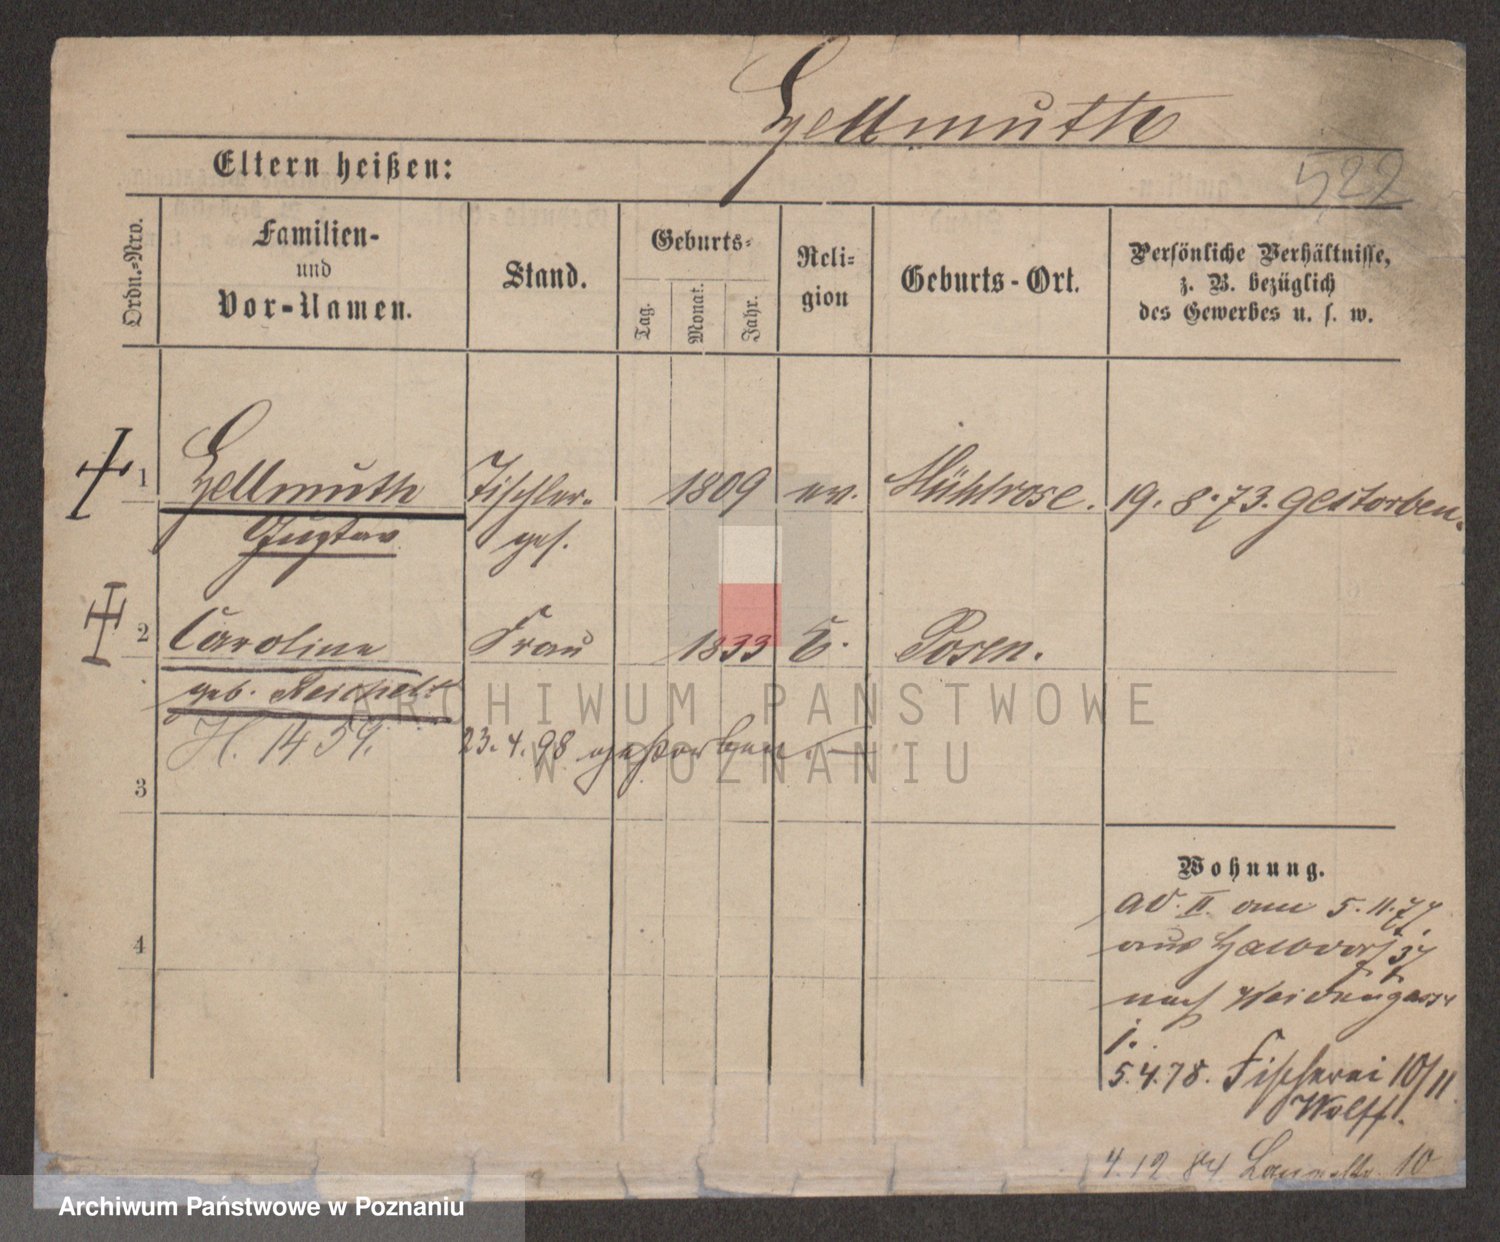 Hellmuth
Eltern heißen:
522
Ordn.=Nro.
Familien-
und
Vor-Namen.
Stand.
Geburts=
Tag.
Monat.
Jahr.
Reli=
gion
Geburts-Ort.
Persönliche Verhältnisse,
z. B. bezüglich
des Gewerbes u. s. w.
1 Hellmuth Tischler- 1809 ev. Mühlrose. 19.8.73. gestorben.
Gustav ges.
2 Caroline Frau 1833 Posen.
geb. Reichelt
H. 1459.
23.4.98 gestorben.
3
4
Wohnung.
av. II. am 5.11.77.
aus Halbdorf 37
nach Weidengasse
5.4.78. Fischerei 10/11
Wolff.
4.12 84 Langestr. 10
ARCHIWUM PAŃSTWOWE
W POZNANIU
Archiwum Państwowe w Poznaniu